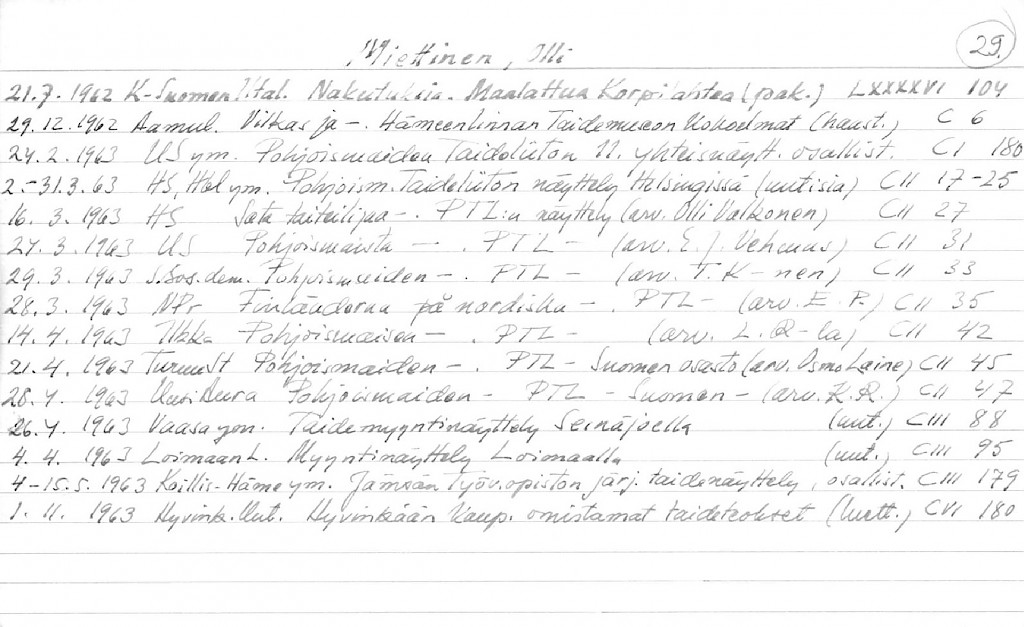 29.
Miettinen, Olli
21.7. 1962 K-Suomen Iltal. Nakutuksia. Maalattua Korpilahtea (pak.) LXXXXVI 104
29.12.1962 Aamul. Vilkas ja -. Hämeenlinnan Taidemuseon Kokoelmat (haast.) C 6
24.2.1963 US ym. Pohjoismaiden Taideliiton 11. yhteisnäytt. osallist. CI 180
2.-31.3.63 HS, Hbl ym. Pohjoism. Taideliiton näyttely Helsingissä (uutisia) CII 17-25
16. 3. 1963 HS Sata taiteilijaa -. PTL:n näyttely (arv. Olli Valkonen) CII 27
27.3.1963 US Pohjoismaista - . PTL - (arv. E.J. Vehmas) CII 31
29.3.1963 S.Sos.dem. Pohjoismaiden - . PTL - (arv. T. K-nen) CII 33
28.3.1963 NPr Finländarna på nordiska - . PTL - (arv. E. P.) CII 35
14.4.1963 Ilkka Pohjoismaisen - . PTL - (arv. L.R-la) CII 42
21.4.1963 TurunSt Pohjoismaiden - . PTL - Suomen osasto (arv. Osmo Laine) CII 45
28.4.1963 Uusi Aura Pohjoismaiden - PTL - Suomen - (arv. K.R.) CII 47
26.4.1963 Vaasa ym. Taidemyyntinäyttely Seinäjoella (uut.) CIII 88
4.4.1963 Loimaan L. Myyntinäyttely Loimaalla (uut.) CIII 95
4-15.5.1963 Koillis-Häme ym. Jämsän Työv.opiston järj. taidenäyttely, osallist. CIII 179
1.11.1963 Hyvink.Uut. Hyvinkään Kaup. omistamat taideteokset (luett.) CVI 180